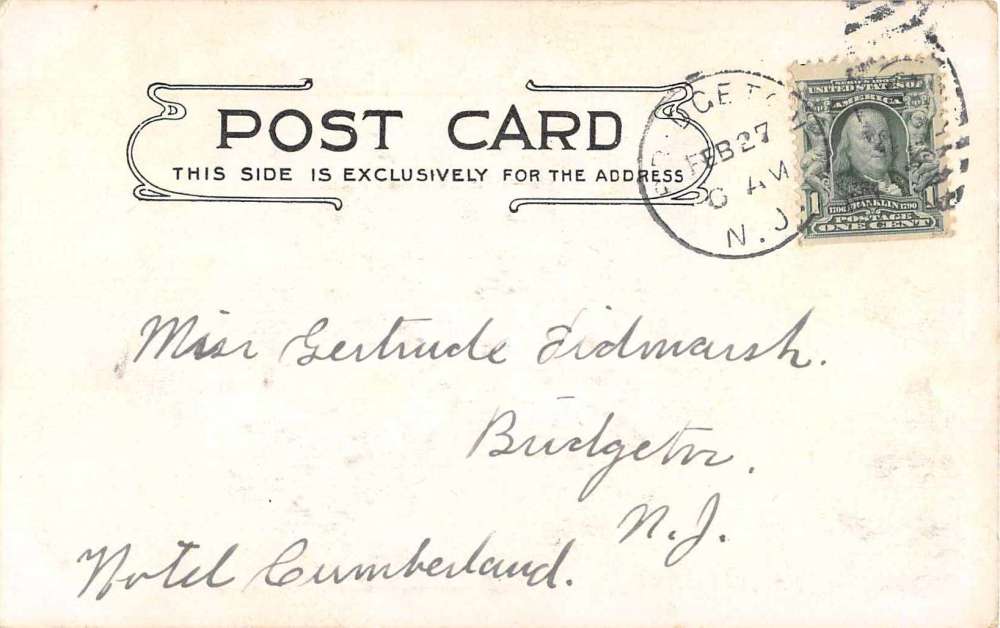 POST CARD
THIS SIDE IS EXCLUSIVELY FOR THE ADDRESS
FEB 27
AM
N.J.
UNITED STATES OF
AMERICA
1 1706 FRANKLIN 1790 1
POSTAGE
ONE CENT
Miss Gertrude Tidmarsh.
Bridgeton,
N.J.
Hotel Cumberland.